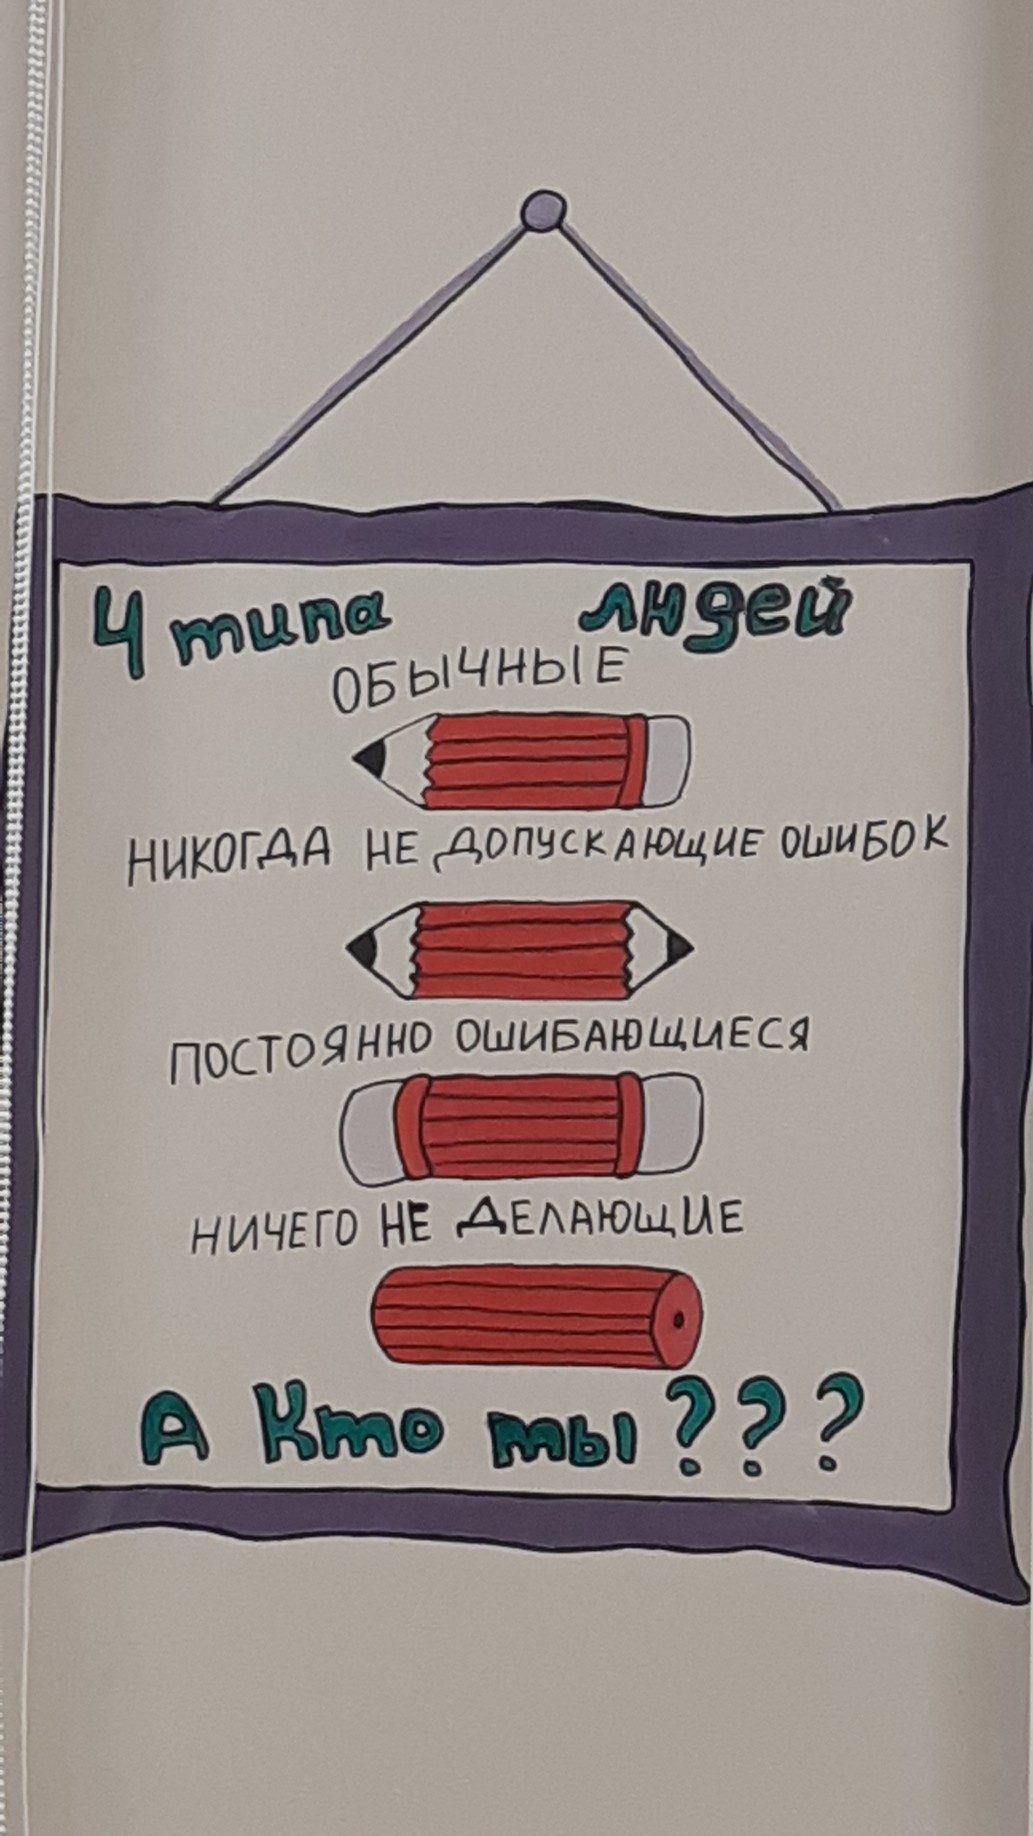 4 типа людей
ОБЫЧНЫЕ
НИКОГДА НЕ ДОПУСКАЮЩИЕ ОШИБОК
ПОСТОЯННО ОШИБАЮЩИЕСЯ
НИЧЕГО НЕ ДЕЛАЮЩИЕ
А Кто ты ???